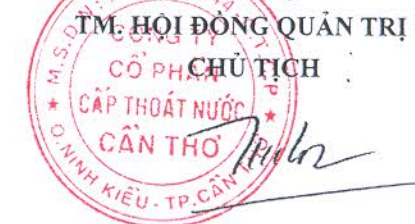 TM. HỘI ĐỒNG QUẢN TRỊ
CHỦ TỊCH
CÔNG TY
CỔ PHẦN
CẤP THOÁT NƯỚC
CẦN THƠ
Q. NINH KIỀU - TP. CẦN
M.S.D.N: